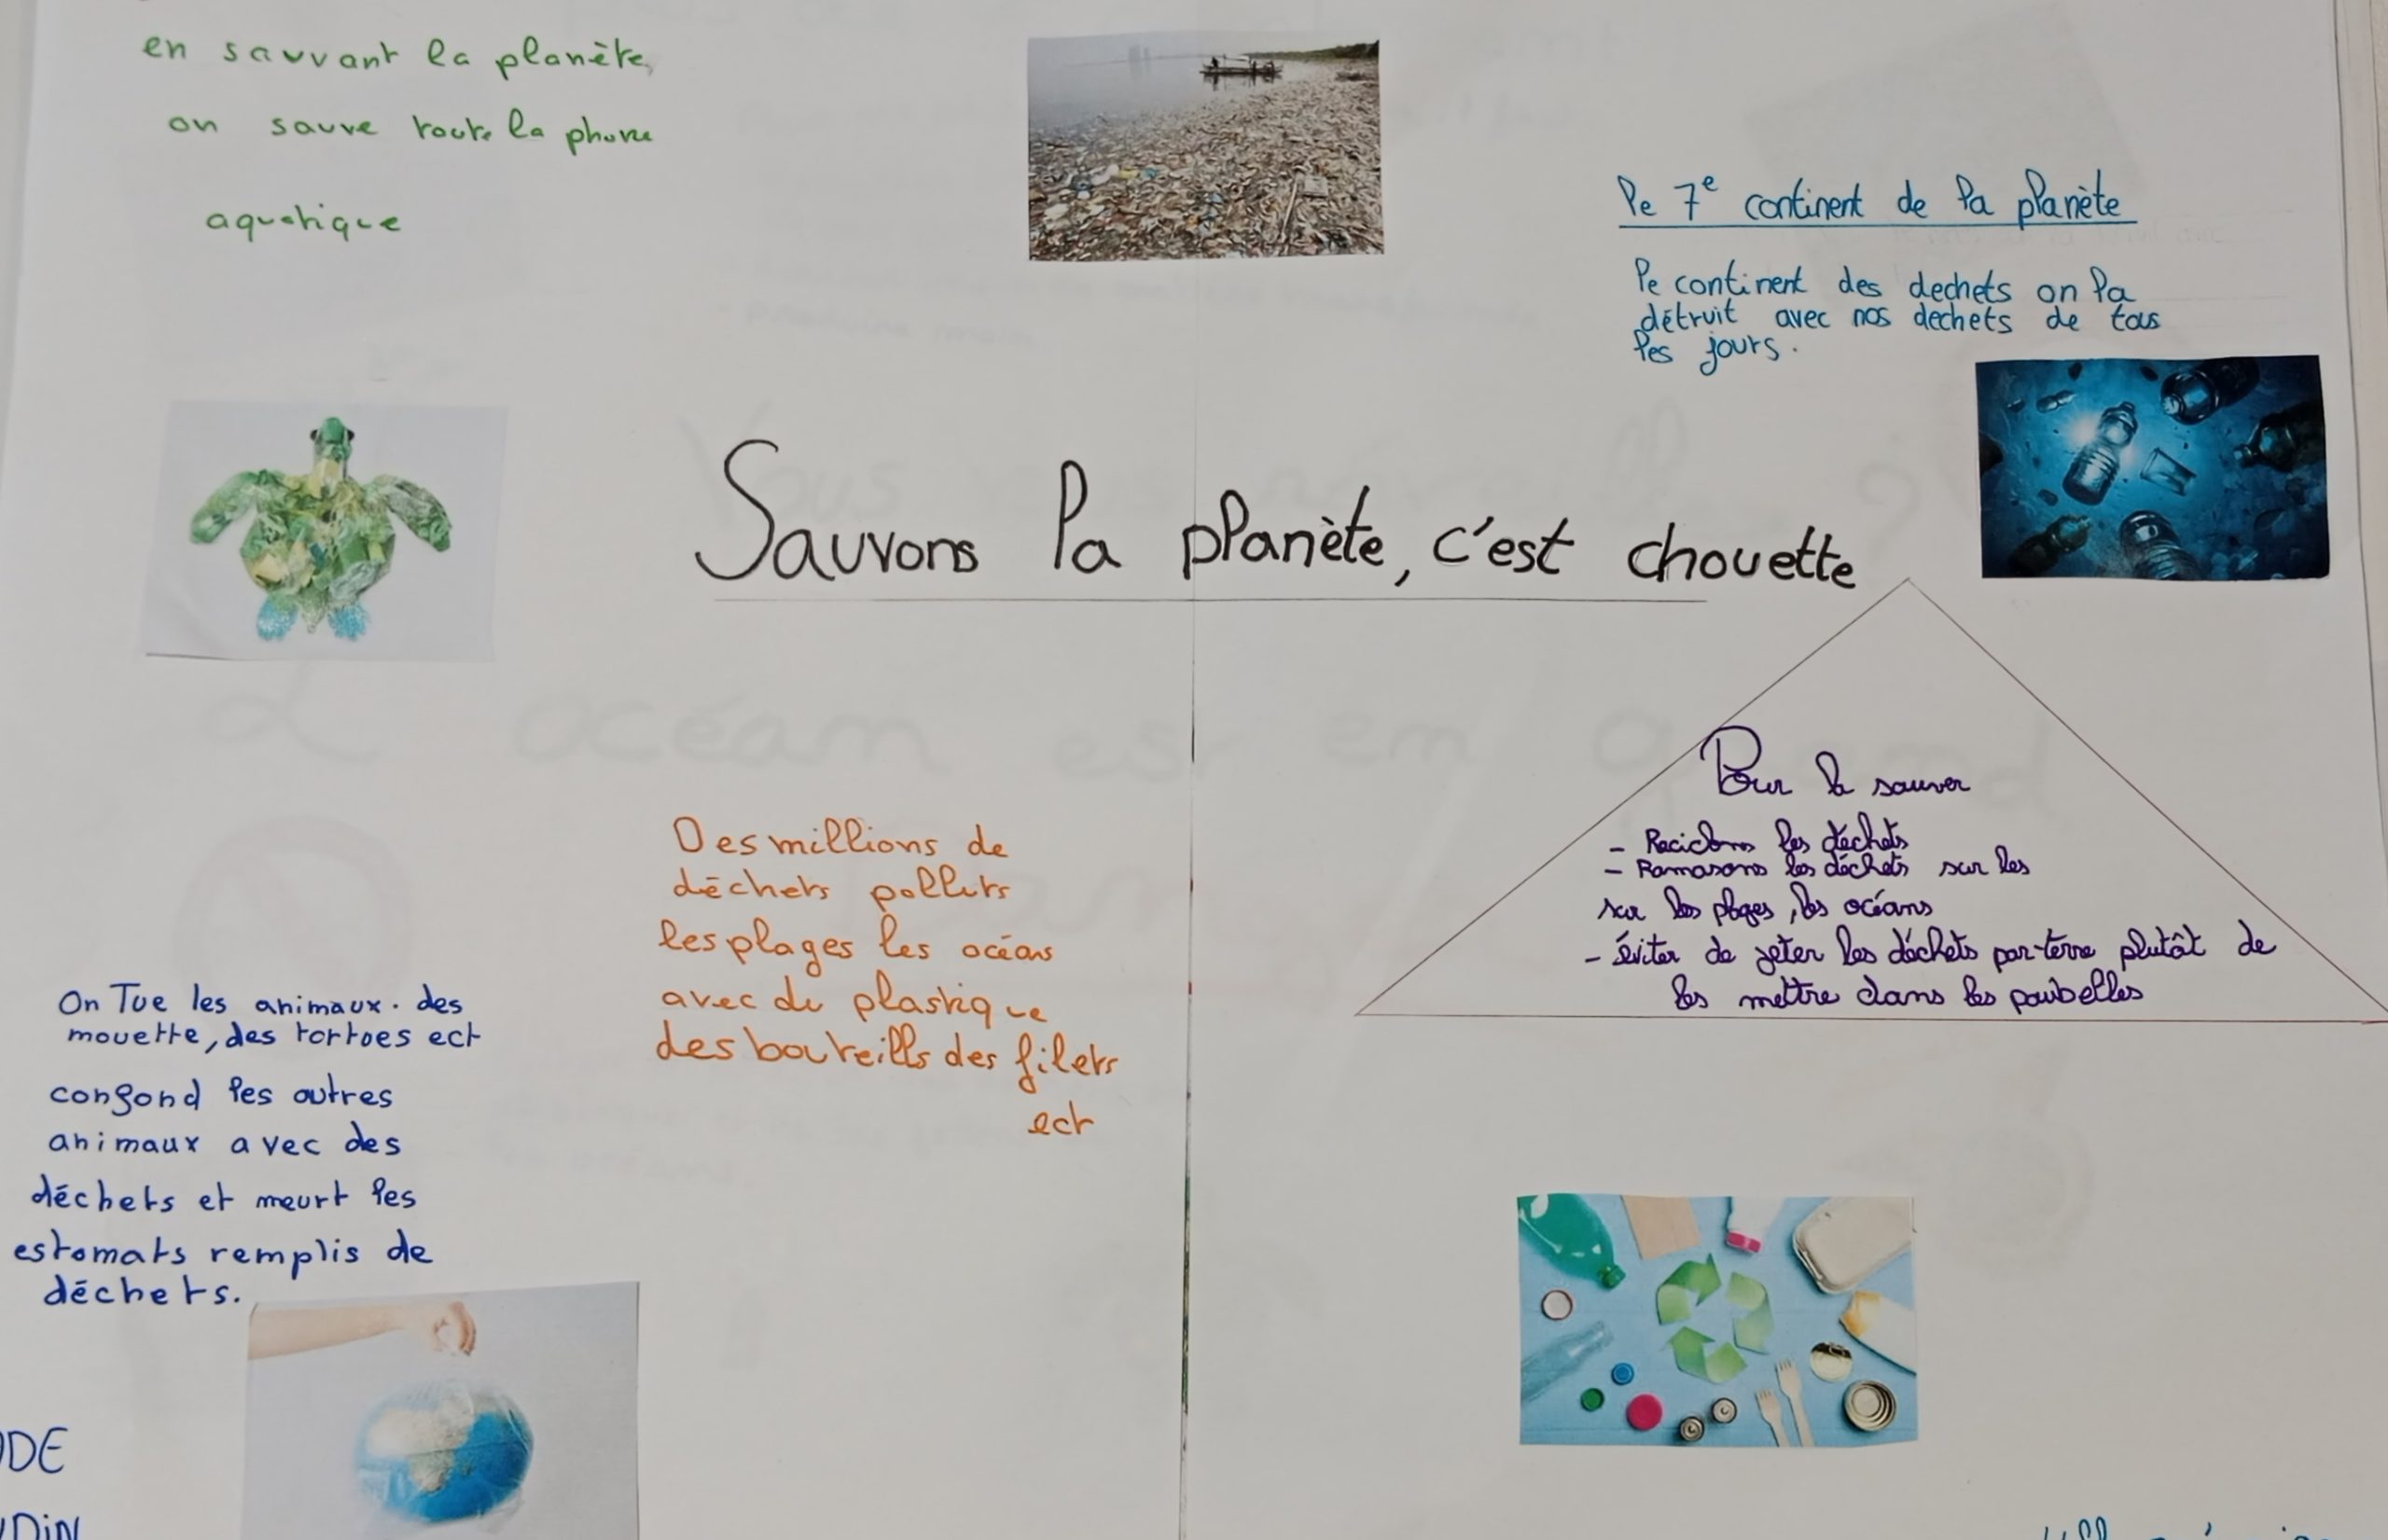 en sauvant la planète,
on sauve toute la phone
aquatique
Le 7e continent de la planète
Le continent des dechets on la
détruit avec nos dechets de tous
les jours.
Sauvons la planète, c'est chouette
Pour la sauver
- Raciclons les déchets
- Ramasons les déchets sur les
sur les plages, les océans
- éviter de jeter les déchets par-terre plutôt de
les mettre dans les poubelles
Des millions de
déchets polluts
les plages les océans
avec du plastique
des bouteills des filets
ect
On Tue les animaux. des
mouette, des tortoes ect
confond les autres
animaux avec des
déchets et meurt les
estomats remplis de
déchets.
DE
DiN